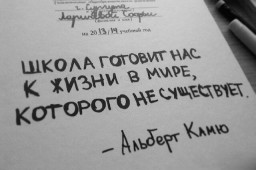 г. Самара
на 2013/14 учебный год.
ШКОЛА ГОТОВИТ НАС
К ЖИЗНИ В МИРЕ,
КОТОРОГО НЕ СУЩЕСТВУЕТ.
– Альберт Камю